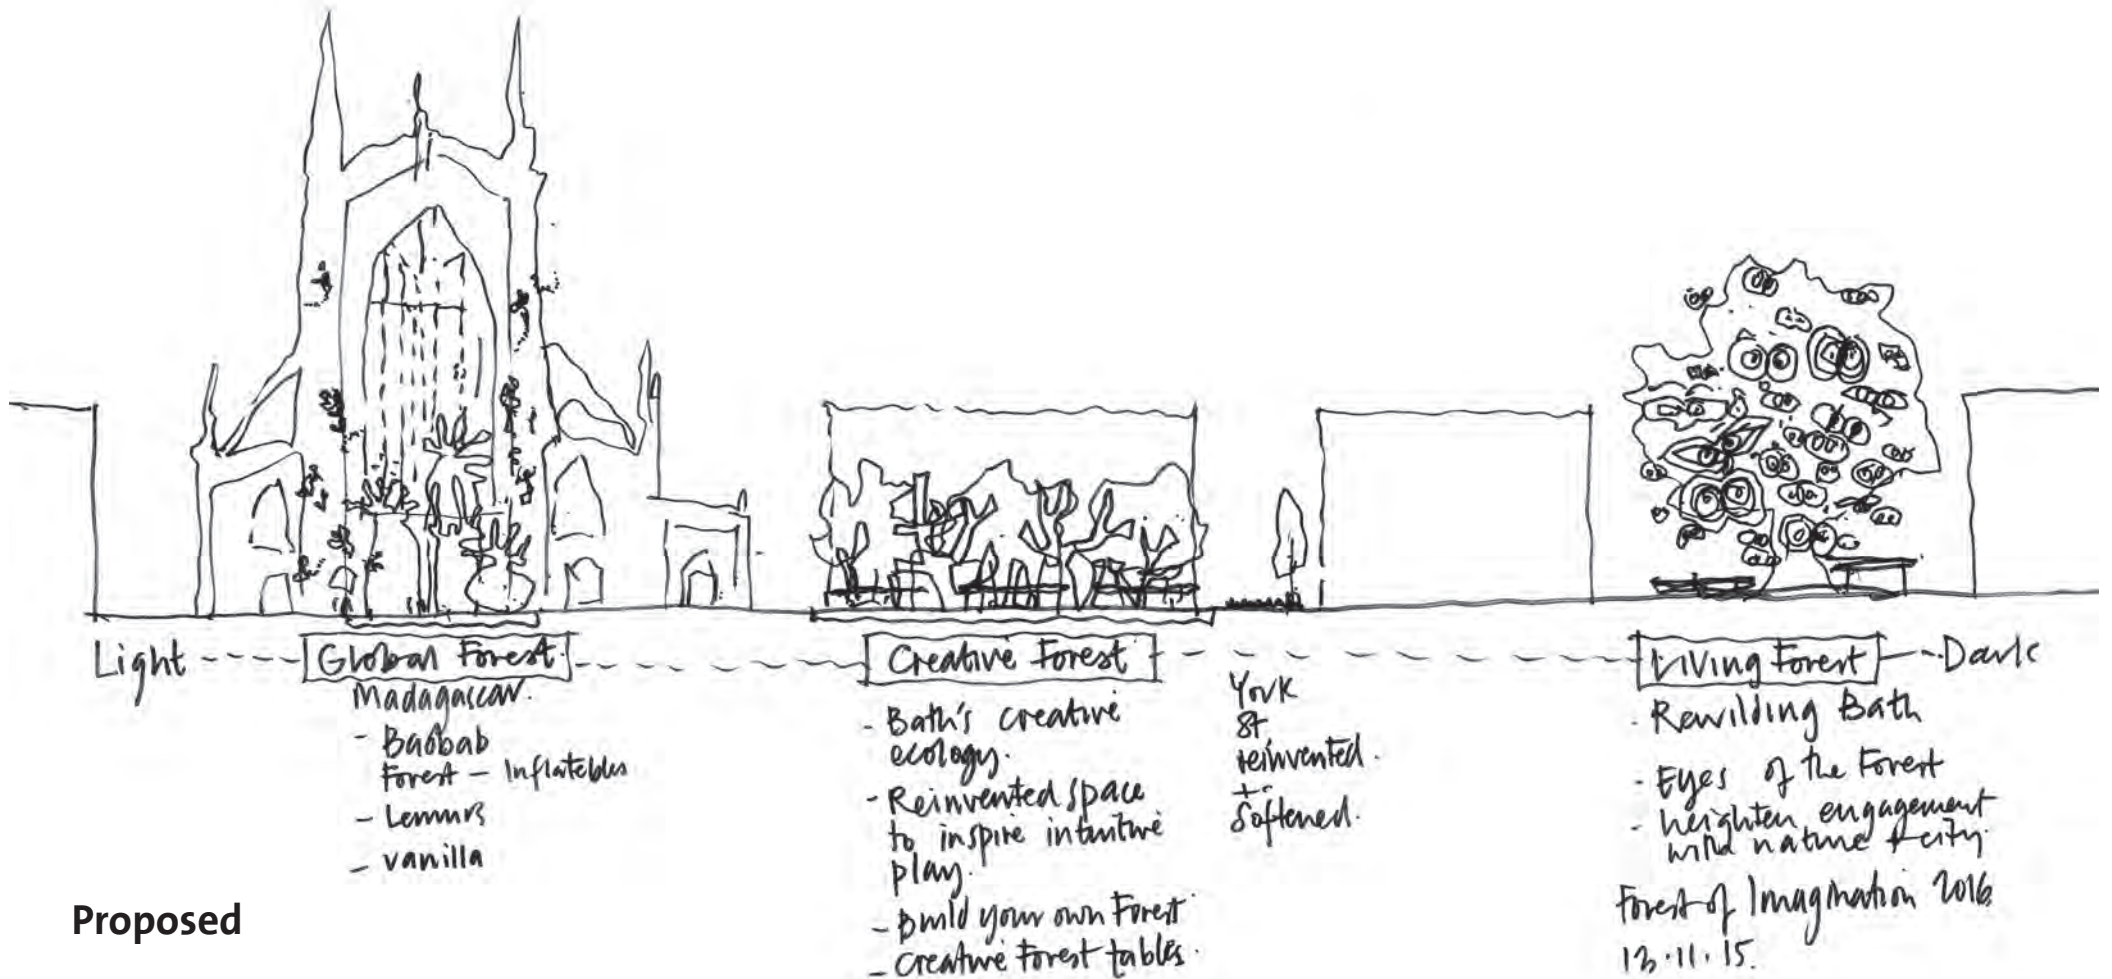 Light
Global Forest
Madagascar.
- Baobab
Forest - Inflatables
- Lemurs
- vanilla
Creative Forest
- Bath's creative
ecology.
- Reinvented space
to inspire intuitive
play.
- Build your own Forest
- Creative Forest tables.
York
St
reinvented.
+
Softened.
Living Forest
Dark
- Rewilding Bath
- Eyes of the Forest
- heighten engagement
wild nature + city.
Forest of Imagination 2016
13.11.15.
Proposed